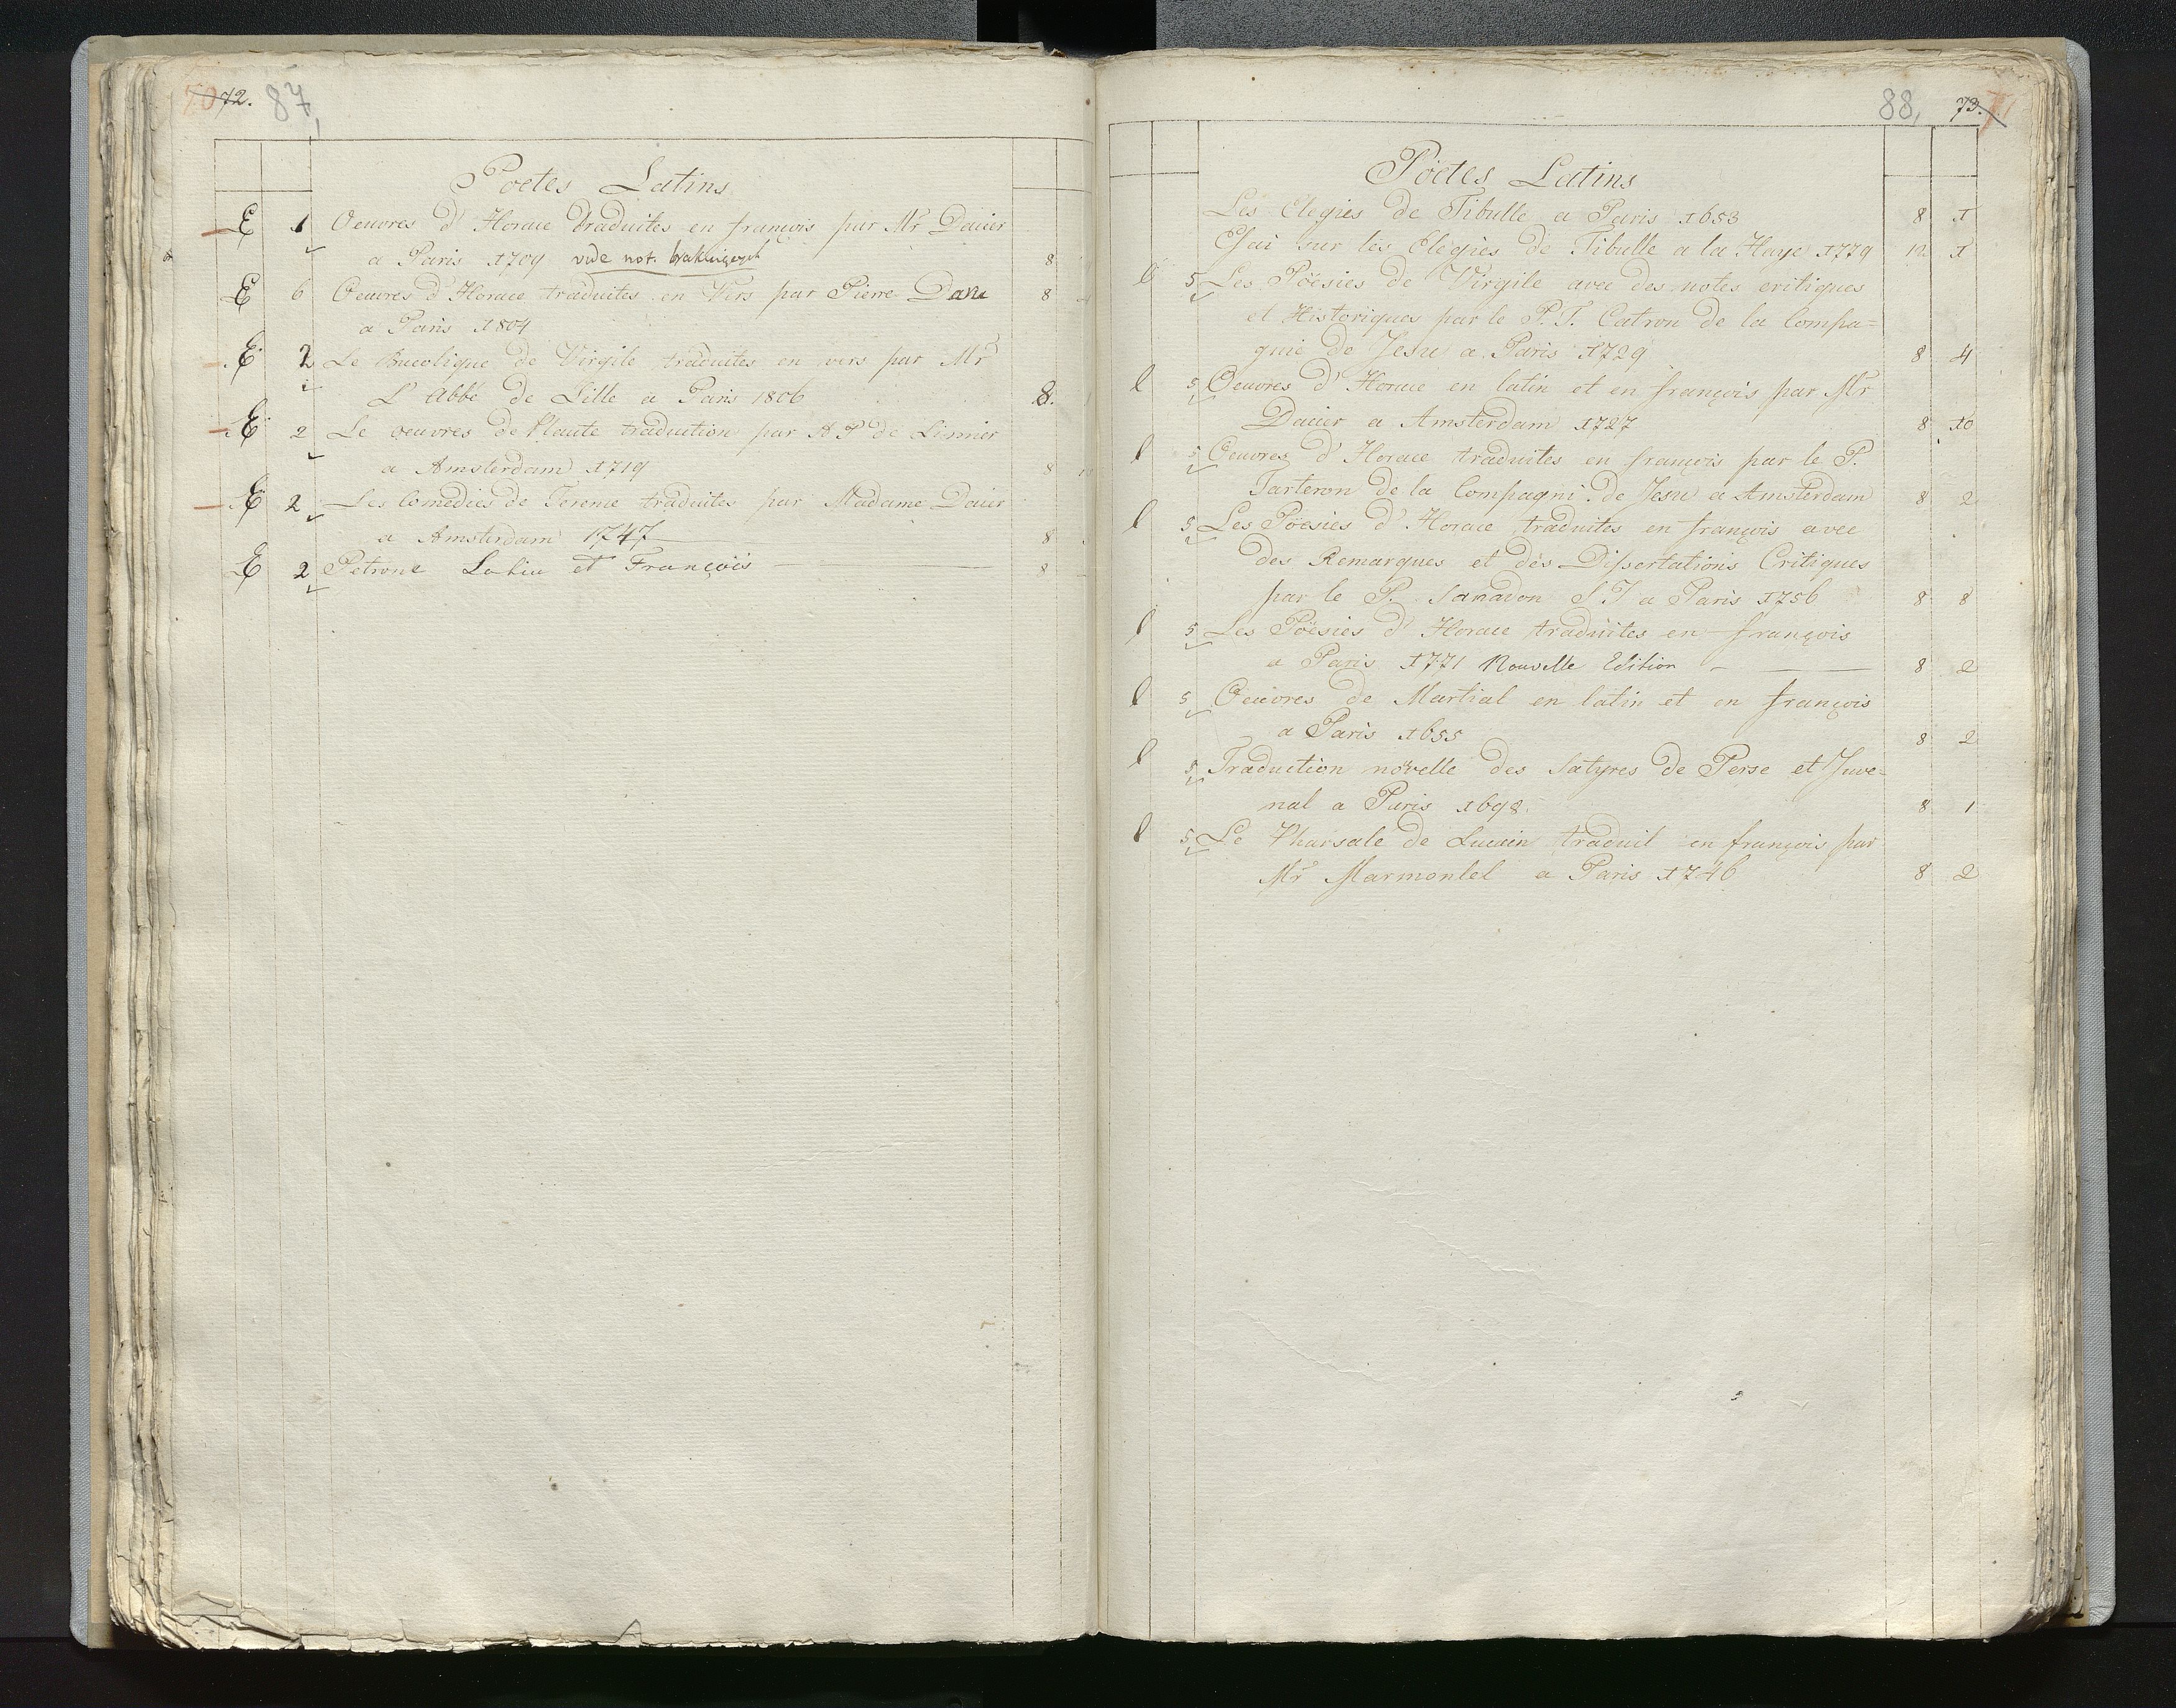 70 72. 87,
Poetes Latins
E 1 Oeuvres d' Horace traduites en françois par Mr Dacier
a Paris 1709 vide not. 8
E 6 Oeuvres d'Horace traduites en Vers par Pierre Daru 8
a Paris 1804
E 2 Le Bucolique de Virgile traduites en vers par Mr
L' Abbé de Lille a Paris 1806 8.
E 2 Le oeuvres de Plaute traduction par A P de Limier
a Amsterdam 1719 8
E 2 Les Comedies de Terence traduites par Madame Dacier
a Amsterdam 1747 8
E 2 Petrone Latin et François 8
88, 73. 71
Pöetes Latins
Les Elegies de Tibulle a Paris 1653 8 1
Essai sur les Elegies de Tibulle a la Haye 1779 12 1
l 5 Les Pöesies de Virgile avec des notes critiques
et Historiques par le P. J. Catron de la Compa=
gnie de Jesu a Paris 1729 8 4
l 5 Oeuvres d' Horace en latin et en françois par Mr
Dacier a Amsterdam 1727 8 10
l 5 Oeuvres d' Horace traduites en françois par le P.
Tarteron de la Compagni. de Jesu a Amsterdam 8 2
l 5 Les Pöesies d' Horace traduites en françois avec
des Remarques et des Dissertations Critiques
par le P. Sanadon S J a Paris 1756 8 8
l 5 Les Pöesies d' Horace traduites en françois
a Paris 1771 Nouvelle Edition 8 2
l 5 Oeuvres de Martial en latin et en françois
a Paris 1655 8 2
l 5 Traduction novelle des Satyres de Perse et Juve=
nal a Paris 1698. 8 1
l 5 Le Pharsale de Lucain traduit en françois par
Mr Marmontel a Paris 1746 8 2